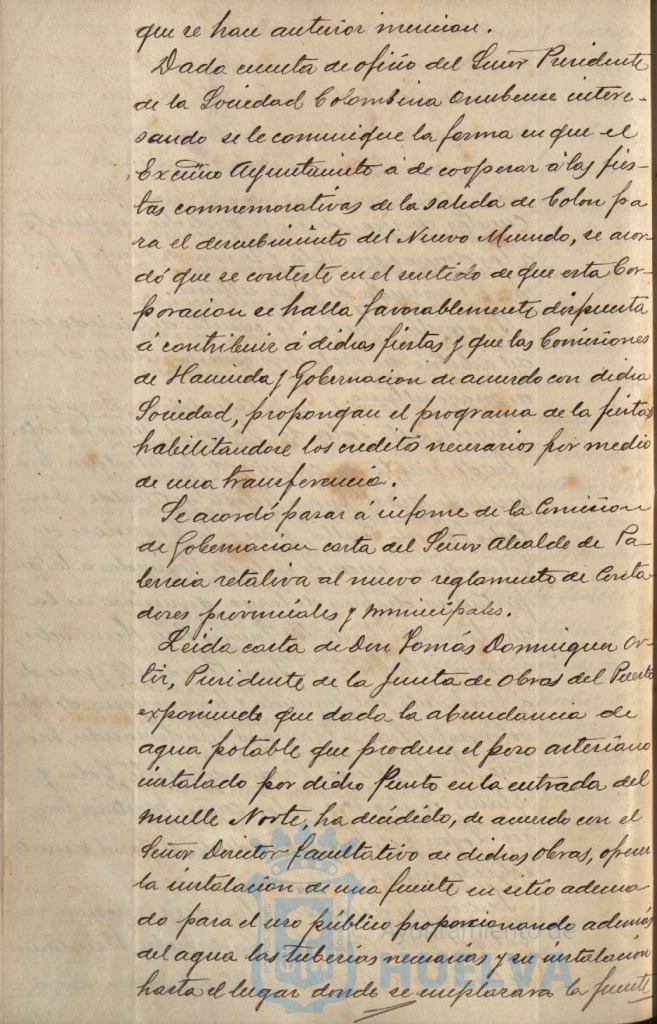 que se hace anterior mencion.
Dada cuenta de oficio del Señor Presidente
de la Sociedad Colombina Onubense intere-
sando se le comunique la forma en que el
Excmo Ayuntamiento á de cooperar á las fies-
tas conmemorativas de la salida de Colon pa
ra el descubrimiento del Nuevo Mundo, se acor-
dó que se conteste en el sentido de que esta Cor-
poracion se halla favorablemente dispuesta
á contribuir á dichas fiestas y que las Comisiones
de Hacienda y Gobernacion de acuerdo con dicha
Sociedad, propongan el programa de la fiestas
habilitandose los creditos necesarios por medio
de una transferencia.
Se acordó pasar á informe de la Comision
de Gobernacion carta del Señor Alcalde de Pa-
lencia relativa al nuevo reglamento de Conta-
dores provinciales y municipales.
Leida carta de Don Tomás Dominguez Or-
tiz, Presidente de la Junta de Obras del Puerto
exponiendo que dada la abundancia de
agua potable que produce el pozo artesiano
instalado por dicho Puerto en la entrada del
muelle Norte, ha decidido, de acuerdo con el
Señor Director facultativo de dichas Obras, ofrecer
la instalacion de una fuente en sitio adecua
do para el uso público proporcionando además
del agua las tuberias necesarias y su instalacion
hasta el lugar donde se emplazara la fuente
Ayuntamiento de
HUELVA